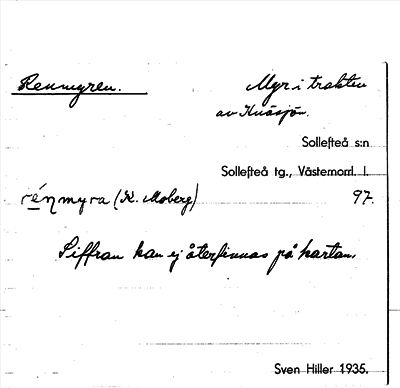 Renmyren. Myr i trakten
av Knäsjön.
Sollefteå s:n
Sollefteå tg., Västernorrl. l.
rénmyra (K. Moberg) 97.
Siffran kan ej återfinnas på kartan.
Sven Hiller 1935.